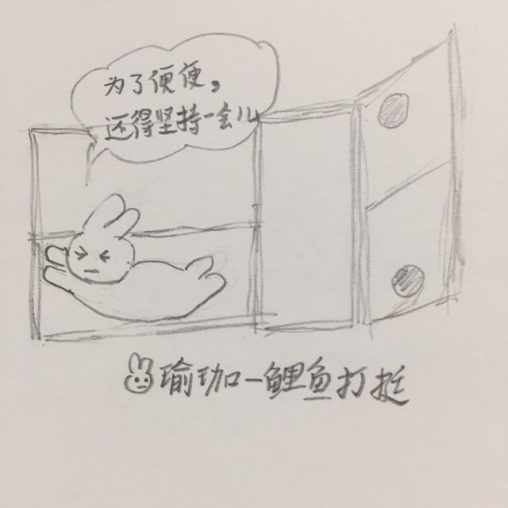 为了便便，
还得坚持一会儿
瑜珈一鲤鱼打挺